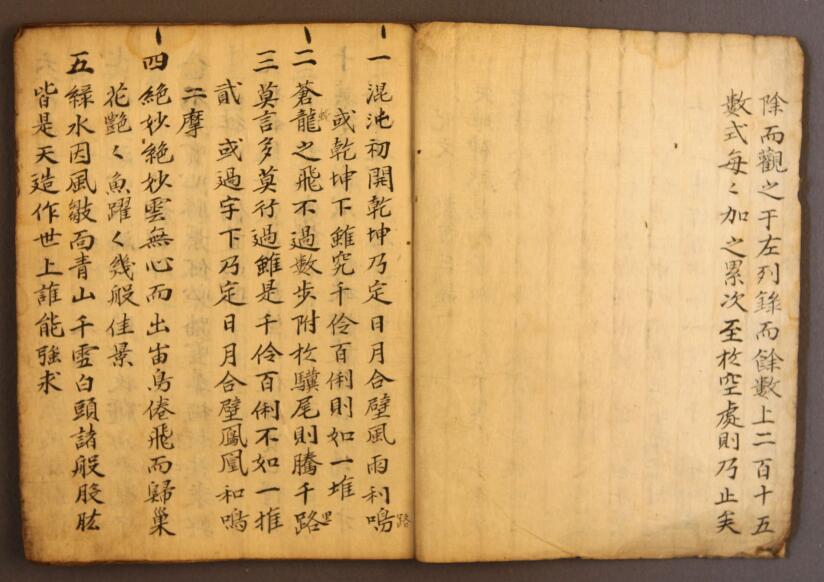 除而觀之于左列錄而餘數上二百十五
數式每々加之累次至於空處則乃止矣
一 混沌初開乾坤乃定日月合璧風雨利鳴
或乾坤下雖究千伶百俐則如一堆
二 蒼龍之飛不過數步附於驥尾則騰千路
三 莫言多莫行過雖是千伶百俐不如一推
貳 或過字下乃定日月合壁鳳凰和鳴
二摩
四 絶妙絶妙雲無心而出宙鳥倦飛而歸巢
花艷々魚躍々幾般佳景
五 綠水因風皺而青山千雪白頭諸般肢肱
皆是天造作世上誰能強求